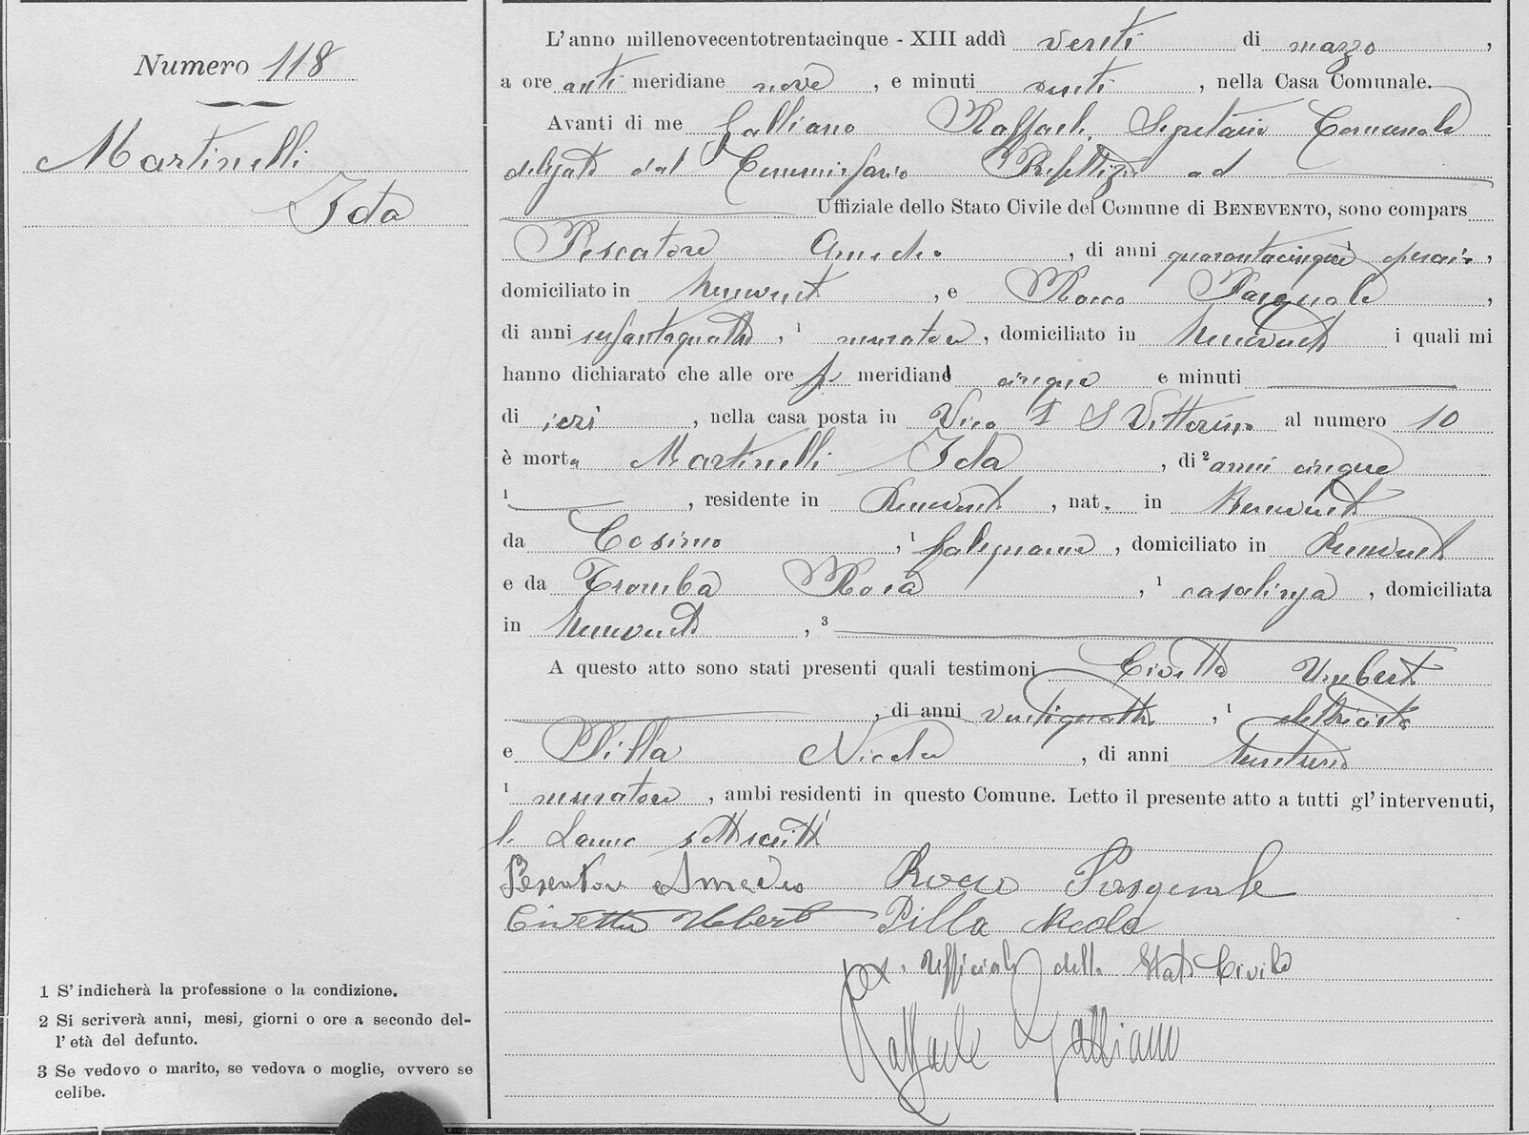 Numero 118
Martinelli
Ida
L'anno millenovecentotrentacinque - XIII addì venti di marzo,
a ore anti meridiane nove, e minuti venti, nella Casa Comunale.
Avanti di me Galliano Raffaele, Segretario Comunale
delegato dal Commissario Prefettizio ad
Uffiziale dello Stato Civile del Comune di BENEVENTO, sono compars
Pescatore Amedeo, di anni quarantacinque ¹ operaio,
domiciliato in Benevento, e Rocco Pasquale,
di anni sessantaquattro, ¹ muratore, domiciliato in Benevento i quali mi
hanno dichiarato che alle ore p meridiane cinque e minuti
di ieri, nella casa posta in Vico I S Vittorino al numero 10
è morta Martinelli Ida, di ² anni cinque
¹ , residente in Benevento, nat. in Benevento
da Cosimo, ¹ falegname, domiciliato in Benevento
e da Tromba Rosa, ¹ casalinga, domiciliata
in Benevento, ³
A questo atto sono stati presenti quali testimoni Civetta Umberto
, di anni ventiquattro, ¹ elettricista
e Pilla Nicola, di anni
¹ muratore, ambi residenti in questo Comune. Letto il presente atto a tutti gl'intervenuti,
lo hanno sottoscritto
Pescatore Amedeo Rocco Pasquale
Civetta Umberto Pilla Nicola
L'ufficiale dello Stato Civile
Raffaele Galliano
1 S'indicherà la professione o la condizione.
2 Si scriverà anni, mesi, giorni o ore a secondo del-
l'età del defunto.
3 Se vedovo o marito, se vedova o moglie, ovvero se
celibe.